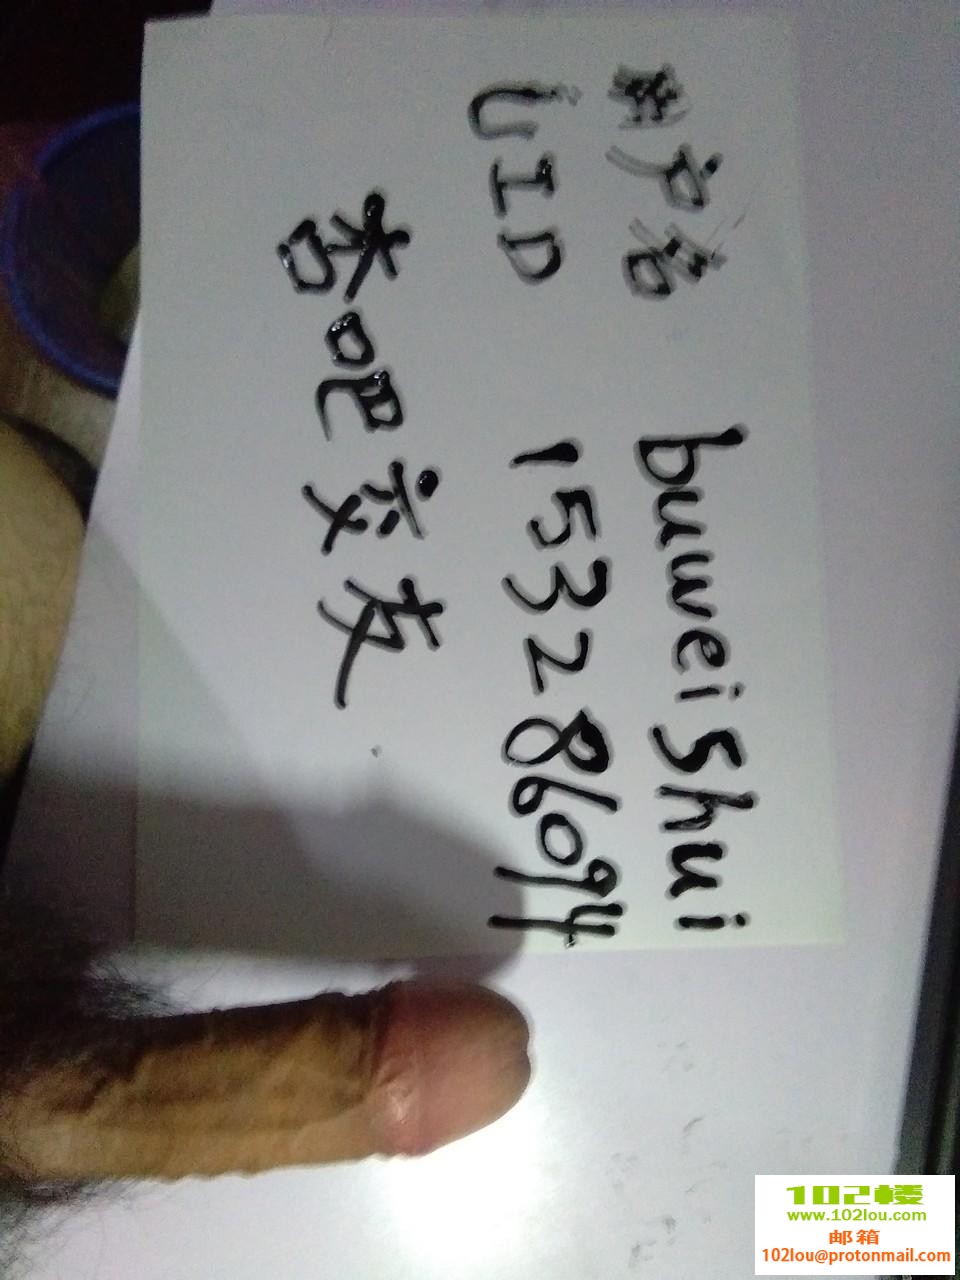 用户名 buweishui
UID 153286094
杏吧交友
102楼
www.102lou.com
邮箱
102lou@protonmail.com